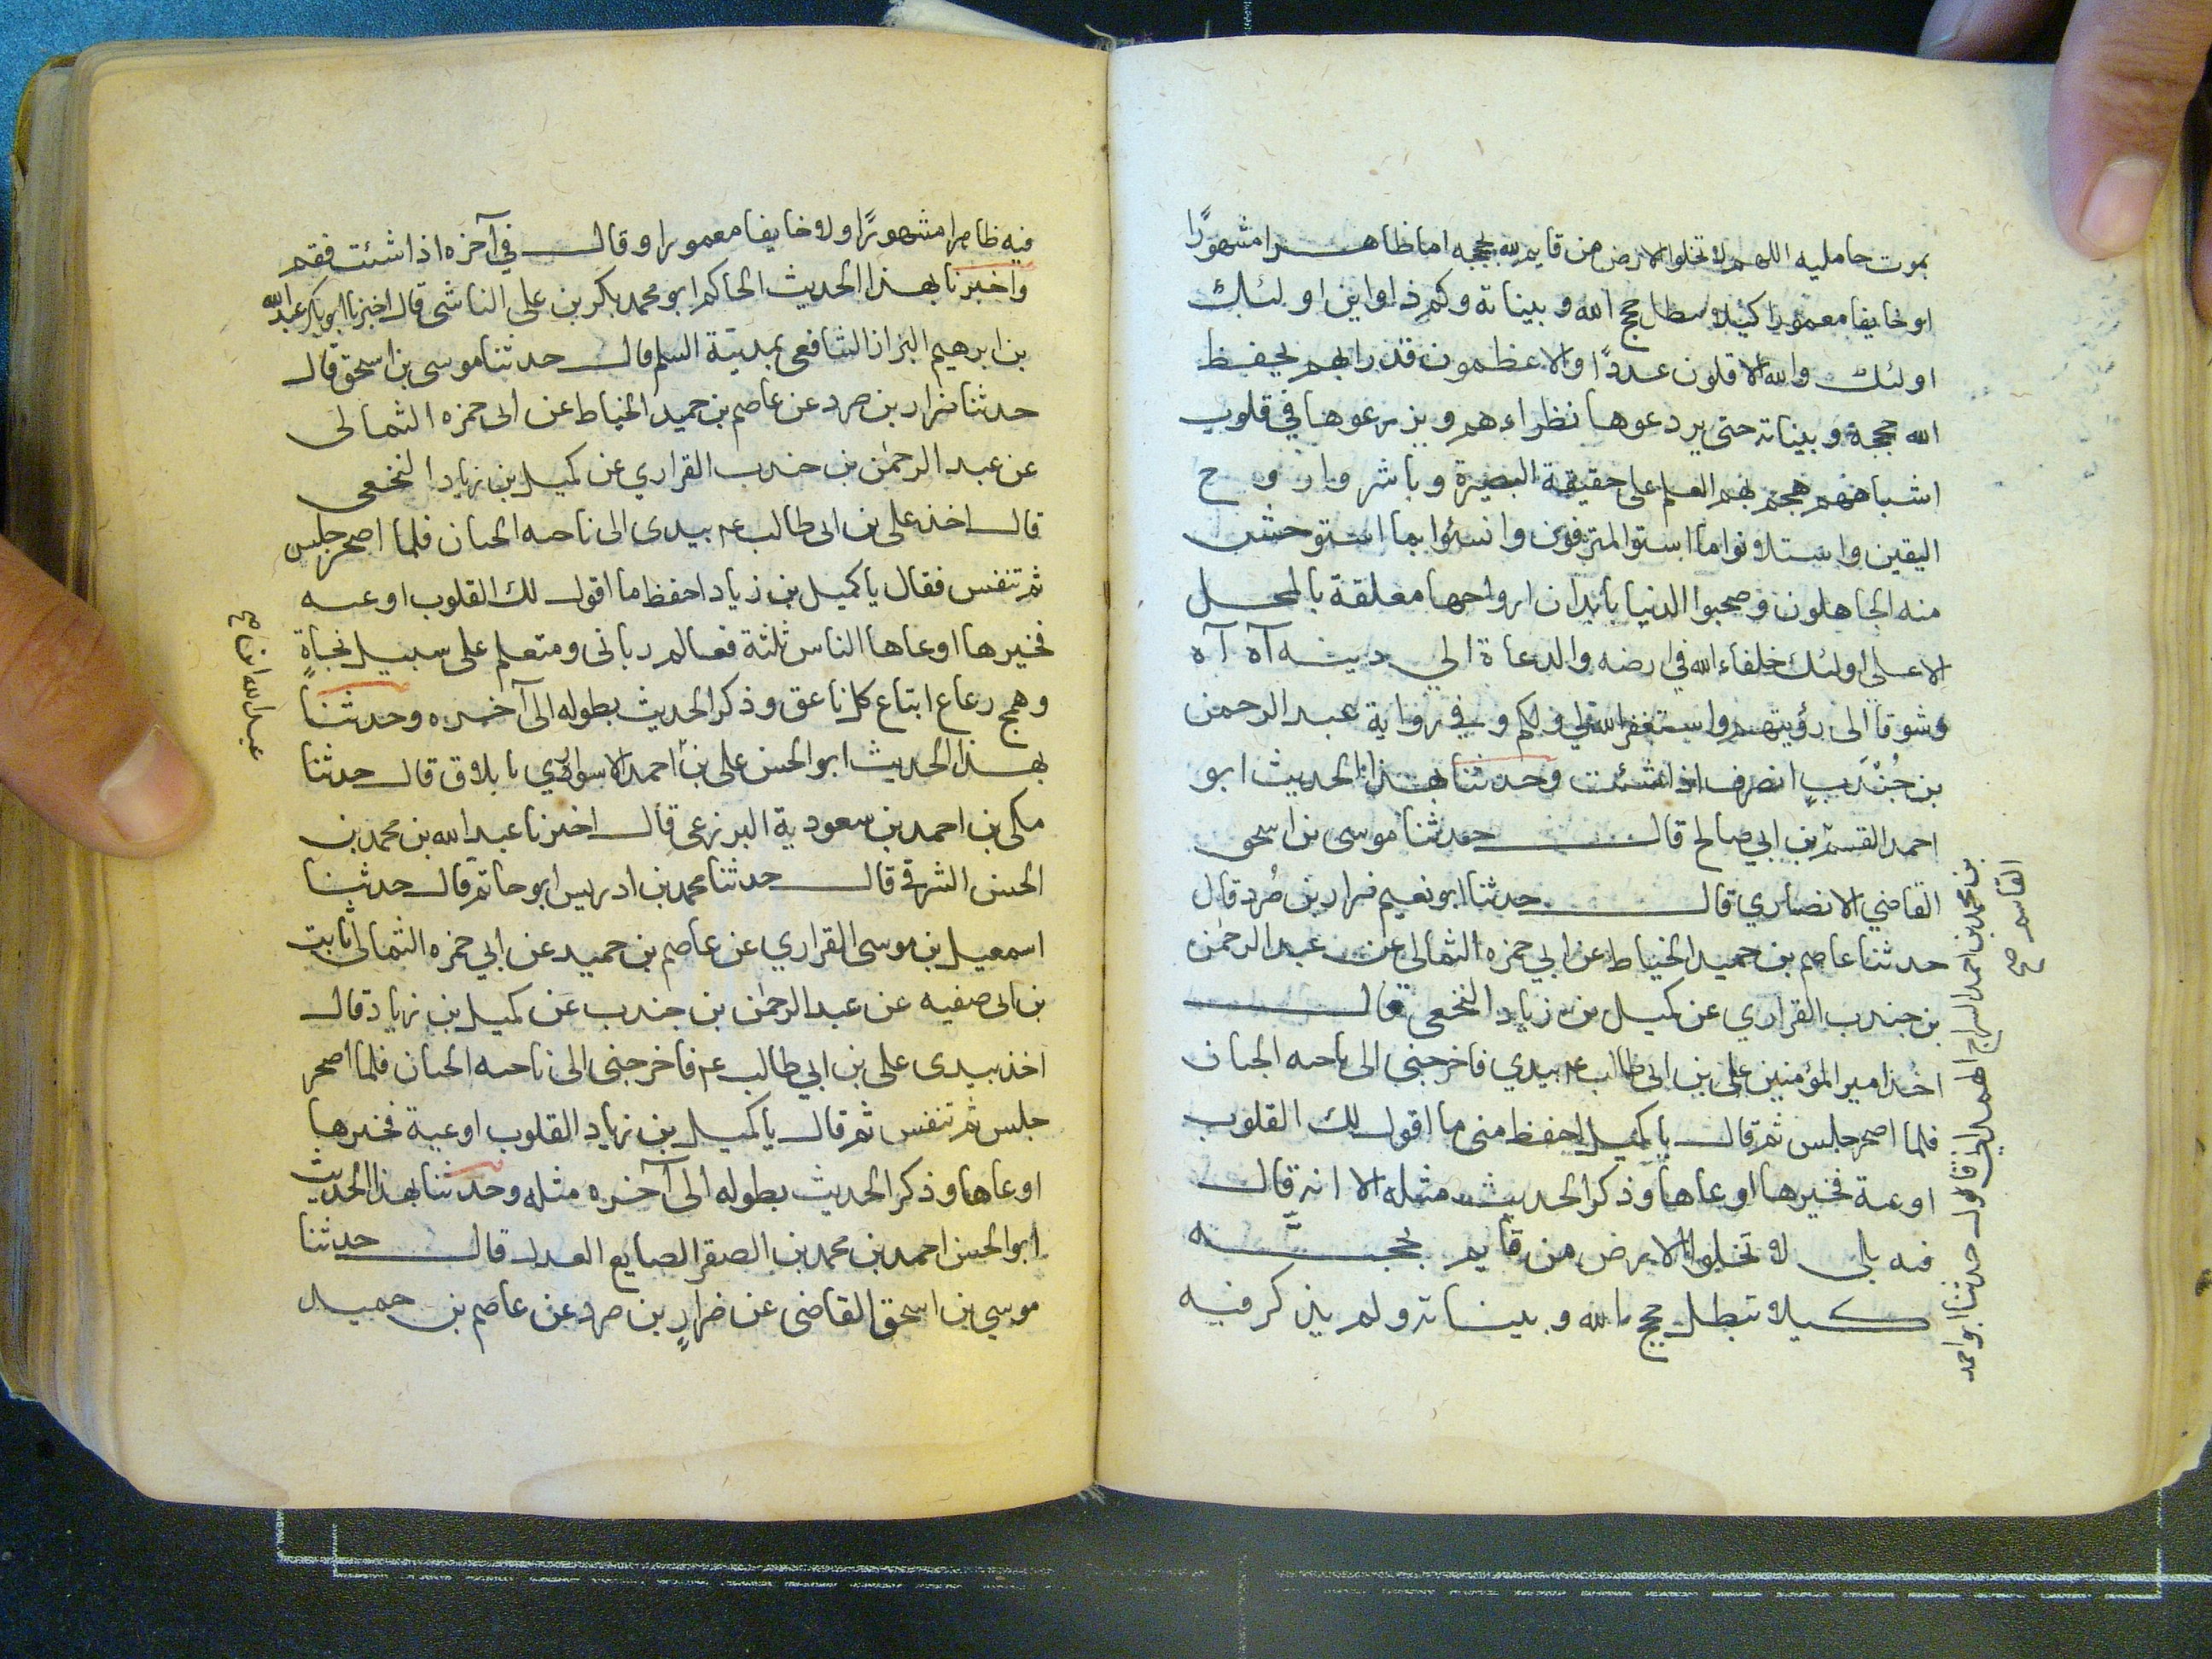 بموت حامليه اللهم لا تخلوا الارض من قايم لله بحجه اما ظاهرا مشهورًا
او خايفا معمورا كيلا سطل حجج الله و بيناته وكم ذا واين اولئك
اولئك والله الاقلون عددًا والاعظمون قدرا بهم يحفظ
الله حججه و بيناته حتى يردعوها نظراءهم و يزرعوها في قلوب
اشباههم هجم بهم العلم على حقيقة البصيرة وباشروا روح
اليقين واستلانوا ما استوا المترفون وانسئوا بما استوحش
منه الجاهلون وصحبوا الدنيا بابدان ارواحها معلقة بالمحل
الاعلى اولئك خلفاء الله في ارضه والدعاة الي دينه آه آه
وشوقا الى رؤيتهم واستغفر الله لي ولكم و في رواية عبد الرحمن
بن جُنْدَبٍ انصرف اذا شئت وحدثنا بهذا الحديث ابو
احمد القسم بن ابي صالح قال حدثنا موسى بن اسحق
القاضي الانصاري قال حدثنا ابو نعيم ضرار بن صُرد قال
حدثنا عاصم بن حميد الخياط عن ابي حمزه الثمالى عن عبد الرحمن
بن جندب القراري عن كميل بن زياد النخعى قال
اخذ امير المؤمنين على بن ابى طالب عه بيدي فاخرجني الى ناحيه الجبان
فلما اصحر جلس ثم قال يا كميل احفظ منى ما اقول لك القلوب
اوعية فخيرها اوعاها وذكر الحديث مثله الا انه قال
فيه بلى لا تخلوا الارض من قايم بحجته
كيلا تبطل حجج الله و بيناته ولم يذكر فيه
بن محمد بن احمد السراج الهمداني قال حدثنا ابو احمد
القاسم صح
فيه ظاهرا مشهورًا ولا خايفا معمورا وقال في آخره اذا شئت فقم
واخبرنا بهذا الحديث الحاكم ابو محمد بكر بن على الناشى قال اخبرنا ابو بكر عبد الله
بن ابرهيم البزاز الشافعى بمدينة السلم قال حدثنا موسى بن اسحق قال
حدثنا ضرار بن صرد عن عاصم بن حميد الخياط عن ابى حمزه الثمالى
عن عبد الرحمٰن بن جندب القراري عن كميل بن زياد النخعى
قال اخذ على بن ابى طالب عه بيدى الى ناحيه الجبان فلما اصحر جلس
ثم تنفس فقال يا كميل بن زياد احفظ ما اقول لك القلوب اوعيه
فخيرها اوعاها الناس ثلثة فعالم ربانى ومتعلم على سبيل نجاةٍ
وهمج رعاع ابتاع كل ناعق و ذكر الحديث بطوله الى آخره وحدثنا
بهذا الحديث ابو الحسن على بن احمد الاسوادي بايلاق قال حدثنا
مكى بن احمد بن سعودية البرزعى قال اخبرنا عبد الله بن محمد بن
الحسن الشرقى قال حدثنا محمد بن ادريس ابو حاتم قال حدثنا
اسمعيل بن موسى القراري عن عاصم بن حميد عن ابي حمزه الثمالى ثابت
بن ابى صفيه عن عبد الرحمٰن بن جندب عن كميل بن زياد قال
اخذ بيدى على بن ابي طالب عه فاخرجنى الى ناحيه الجبان فلما اصحر
جلس ثم تنفس ثم قال يا كميل بن زياد القلوب اوعية فخيرها
اوعاها وذكر الحديث بطوله الى آخره مثله وحدثنا بهذا الحديث
ابو الحسن احمد بن محمد بن الصقر الصايع العدل قال حدثنا
موسى بن اسحق القاضى عن ضرارٍ بن صرد عن عاصم بن حميد
عبد الله